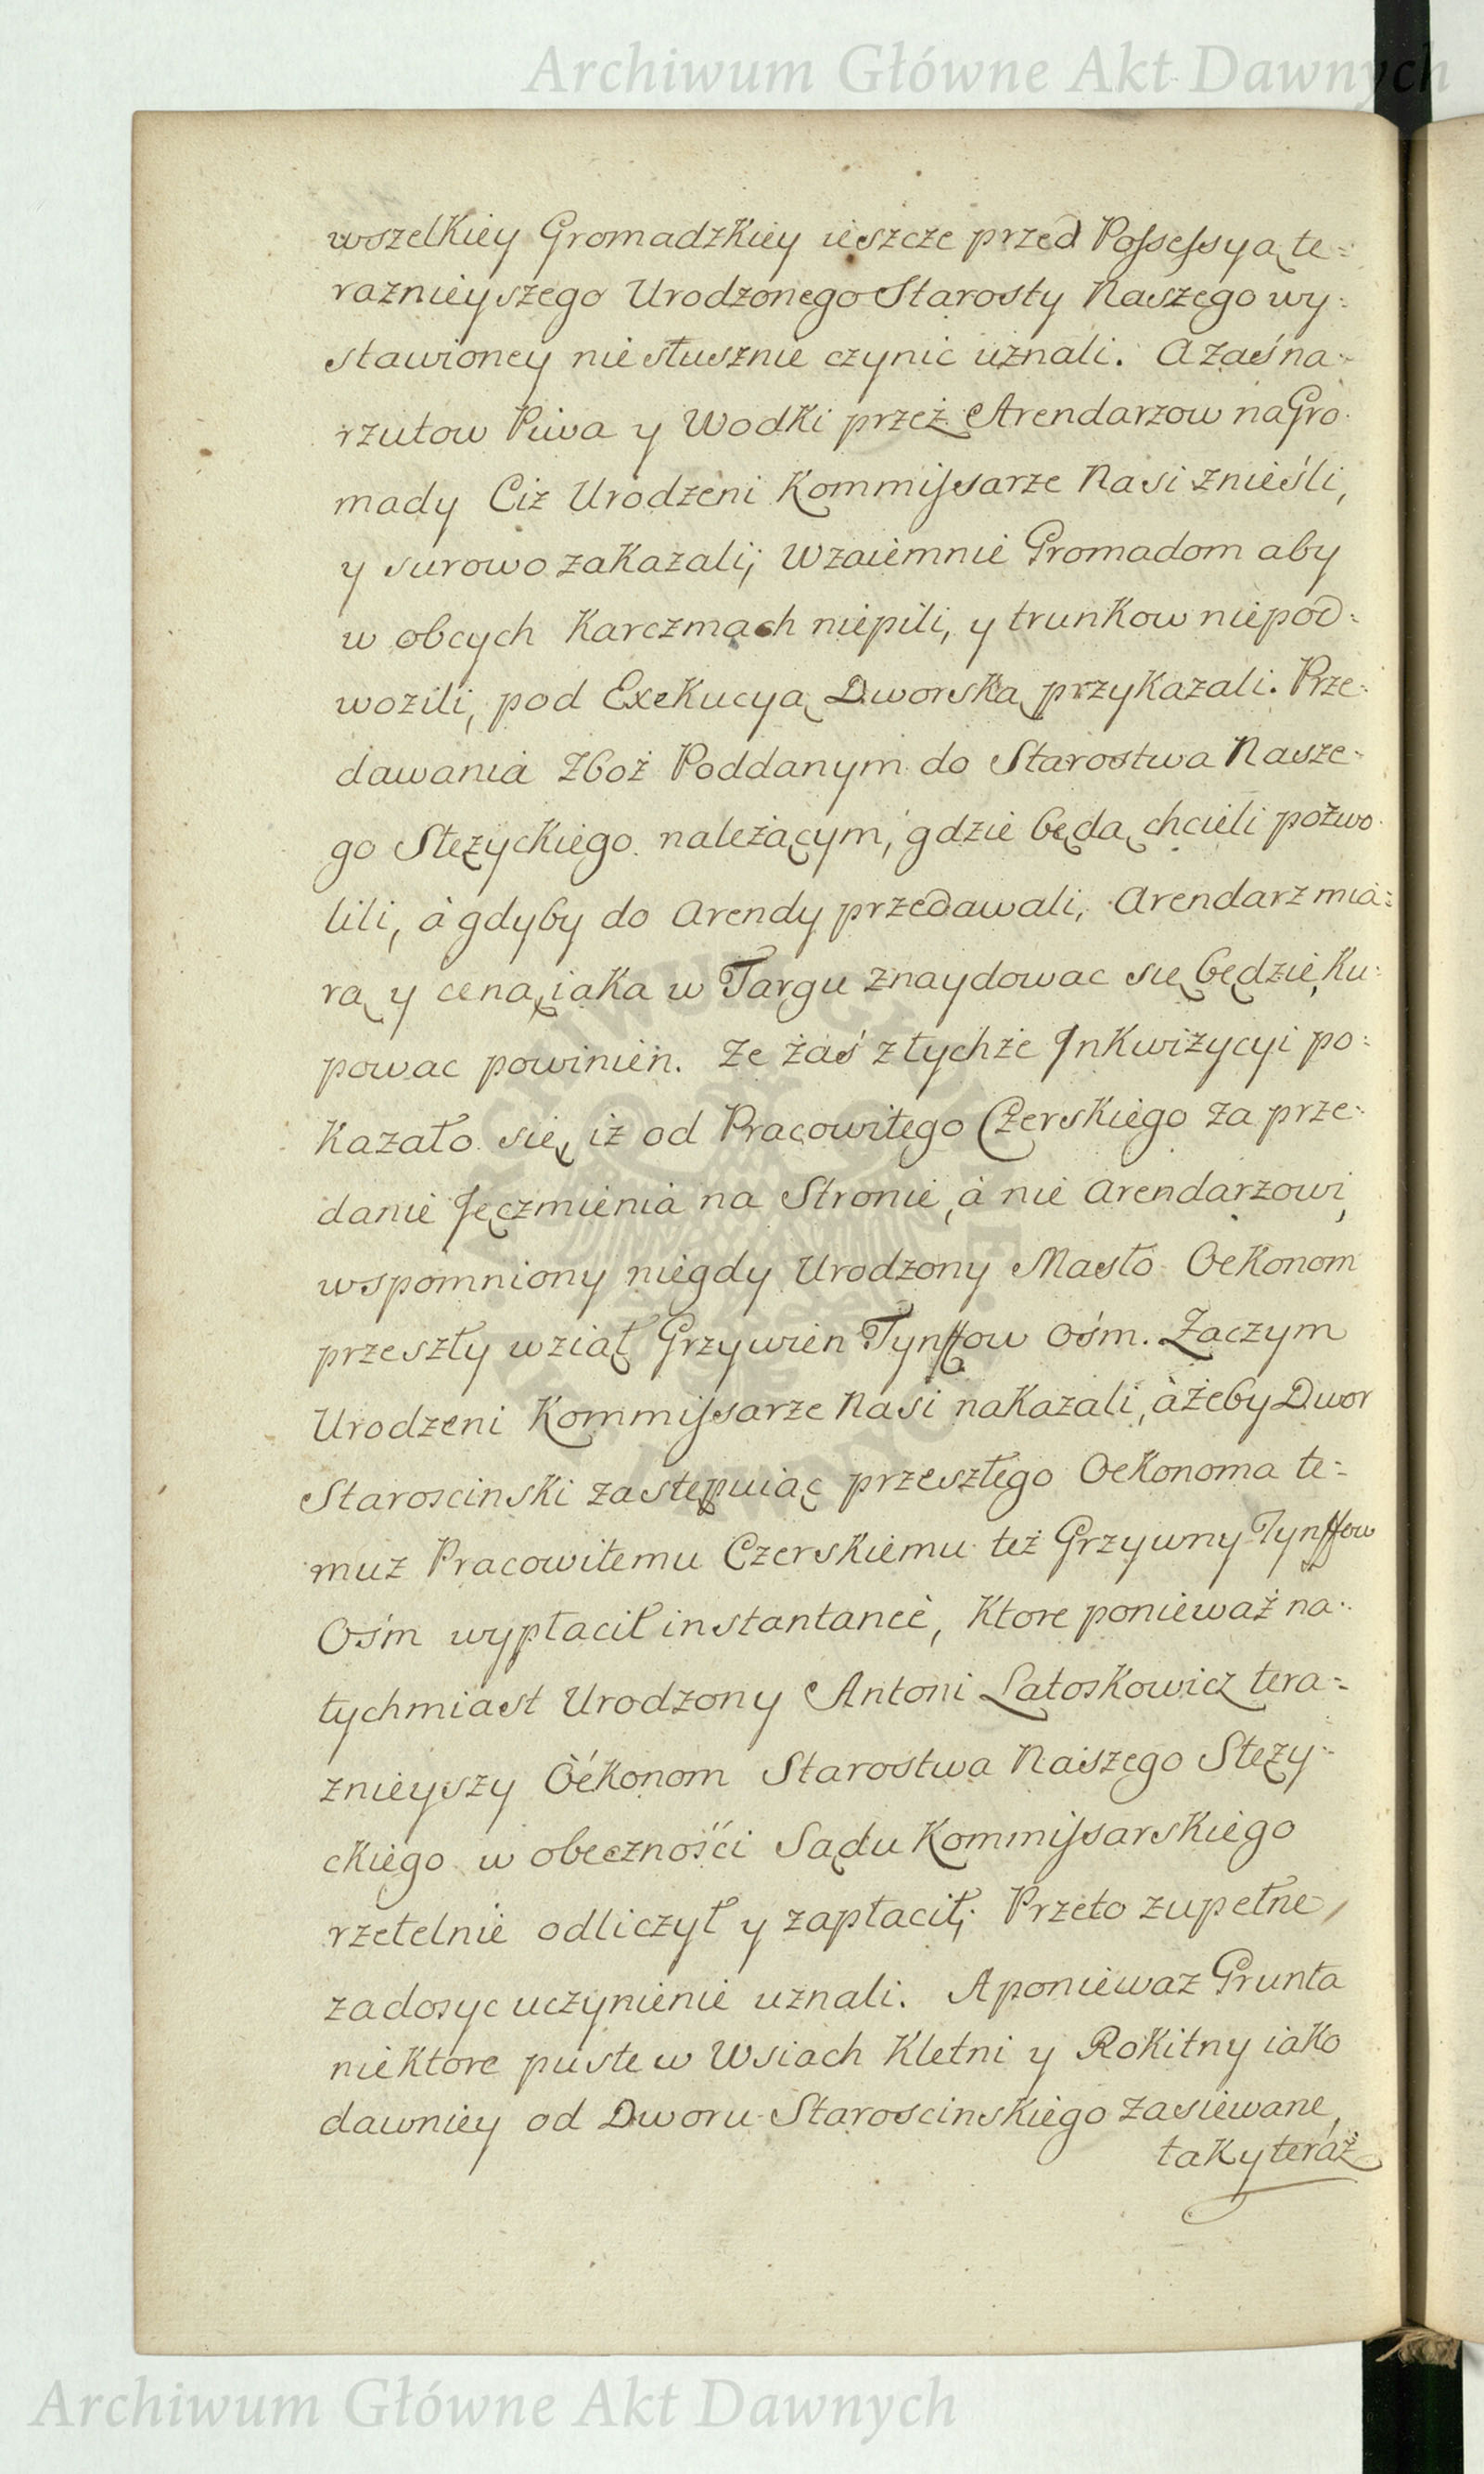 Archiwum Główne Akt Dawnych
wszelkiey Gromadzkiey ieszcze przed Possessyą te=
raznieyszego Urodzonego Starosty Naszego wy=
stawioney niesłusznie czynic uznali. A zaś na=
rzutow Piwa y Wodki przez Arendarzow na Gro=
mady Ciz Urodzeni Kommissarze Nasi znieśli,
y surowo zakazali; Wzaiemnie Gromadom aby
w obcych Karczmach niepili, y trunkow niepod=
wozili, pod Exekucyą Dworską przykazali. Prze=
dawania Zboż Poddanym do Starostwa Nasze=
go Stężyckiego należącym, gdzie będą chcieli pozwo=
lili, à gdyby do Arendy przedawali, Arendarz mia=
rą y ceną iaka w Targu znaydowac się będzie, Ku=
powac powinien. Ze zaś z tychże Inkwizycyi po=
kazało się, iż od Pracowitego Czerskiego za prze=
danie Jęczmienia na Stronie, à nie Arendarzowi,
wspomniony niegdy Urodzony Masło Oekonom
przeszły wziął Grzywien Tynffow Ośm. Zaczym
Urodzeni Kommissarze Nasi nakazali, àżeby Dwor
Staroscinski zastępuiąc przeszłego Oekonoma te=
muz Pracowitemu Czerskiemu też Grzywny Tynffow
Ośm wypłacił instantanee, Ktore ponieważ na=
tychmiast Urodzony Antoni Latoskowicz tera=
znieyszy Oekonom Starostwa Naszego Stęży=
ckiego w obecznosći Sądu Kommissarskiego
rzetelnie odliczył y zapłacił; Przeto zupełne
zadosyc uczynienie uznali. A poniewaz Grunta
niektore puste w Wsiach Kletni y Rokitny iako
dawniey od Dworu Staroscinskiego zasiewane,
tak y teraz
Archiwum Główne Akt Dawnych